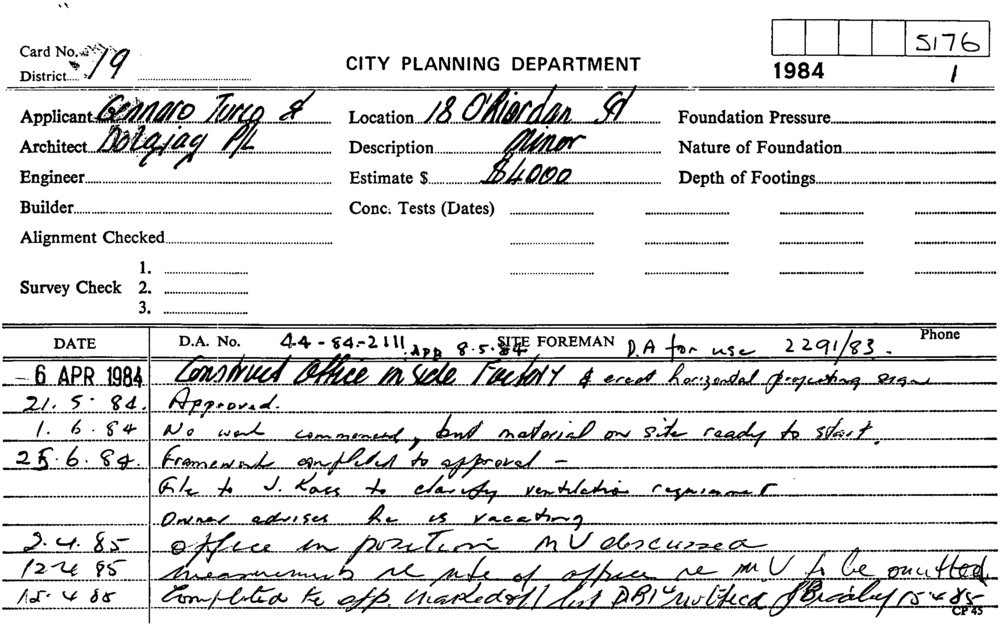 5176
Card No. 79
District
CITY PLANNING DEPARTMENT
1984 1
Applicant Gennaro Turco &
Location 18 O'Riordan St
Foundation Pressure
Architect Dolgjag P/L
Description Minor
Nature of Foundation
Engineer
Estimate $ $4000
Depth of Footings
Builder
Conc. Tests (Dates)
Alignment Checked
1.
Survey Check 2.
3.
DATE D.A. No. 44-84-2111 App 8.5.84 SITE FOREMAN D.A for use 2291/83. Phone
-6 APR 1984 Construct Office inside Factory & erect horizontal projecting sign
21.5.84. Approved.
1.6.84 No work commenced, but material on site ready to start.
25.6.84. Framework completed to approval -
File to J. to clarify ventilation requirement
Owner advises he is vacating
2.4.85 office in position MV discussed
12-4 85 measurements re of office re M.V to be omitted
15.4 85 Completed to app. Marked off list notified 15.4.85
CP 45